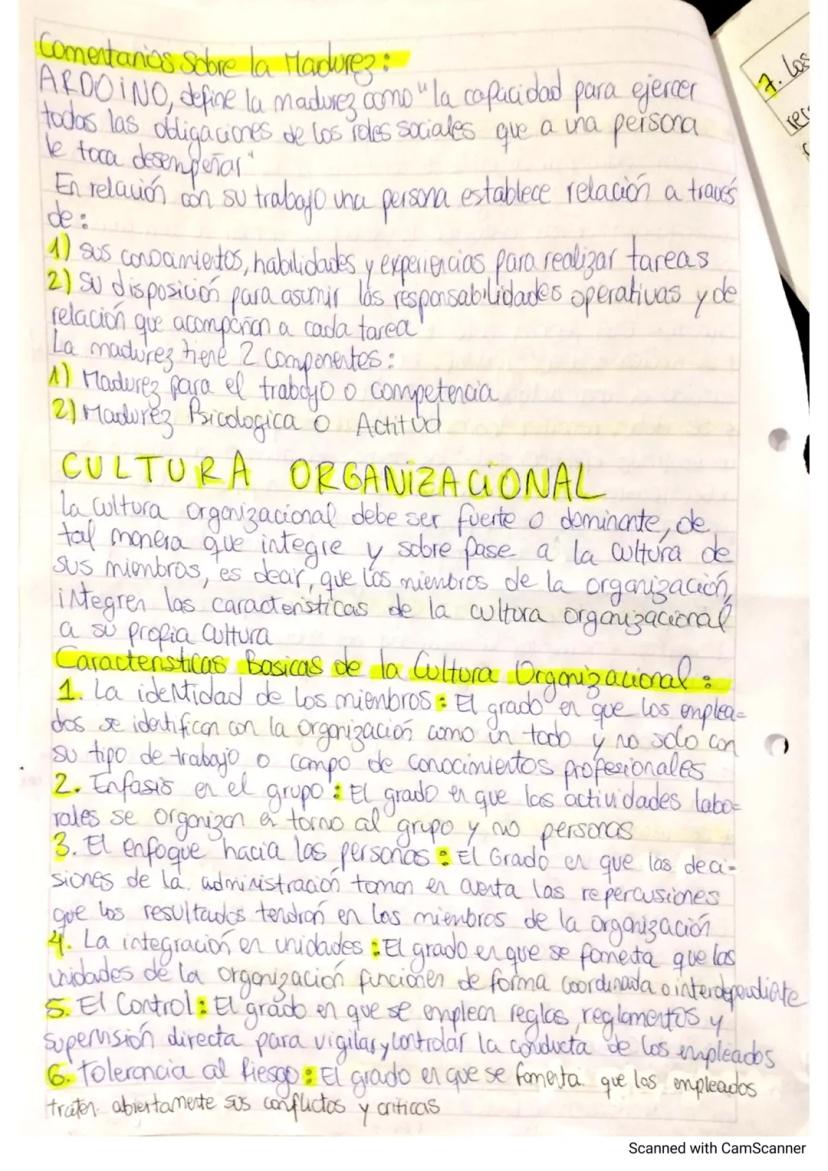 Comentarios sobre la Madurez:
ARDOINO, define la madurez como "la capacidad para ejercer
todas las obligaciones de los roles sociales que a una persona
le toca desempeñar"
En relación con su trabajo una persona establece relación a través
de:
1) sus conocimientos, habilidades y experiencias para realizar tareas
2) Su disposición para asumir las responsabilidades operativas y de
relación que acompañan a cada tarea
La madurez tiene 2 componentes:
1) Madurez para el trabajo o competencia
2) Madurez Psicologica o Actitud
CULTURA ORGANIZACIONAL
la cultura organizacional debe ser fuerte o dominante, de
tal manera que integre y sobre pase a la cultura de
sus miembros, es decir, que los miembros de la organización,
integren las características de la cultura organizacional
a su propia cultura
Caracteristicas Basicas de la Cultura Organizacional:
1. La identidad de los miembros: El grado en que los emplea=
dos se identifican con la organización como un todo y no solo con
su tipo de trabajo o campo de conocimientos profesionales
2. Enfasis en el grupo: El grado en que las actividades labo=
rales se organizan en torno al grupo y no personas
3. El enfoque hacia las personas: El Grado en que las deci-
siones de la administración toman en cuenta las repercusiones
que los resultados tendrán en los miembros de la organización
4. La integración en unidades: El grado en que se fomenta que las
unidades de la organización funcionen de forma coordinada o interdependiente
5. El Control: El grado en que se emplean reglas, reglamentos y
supervisión directa para vigilar y controlar la conducta de los empleados
6. Tolerancia al Riesgo: El grado en que se fomenta que los empleados
traten abiertamente sus conflictos y criticas
7. Los
Scanned with CamScanner